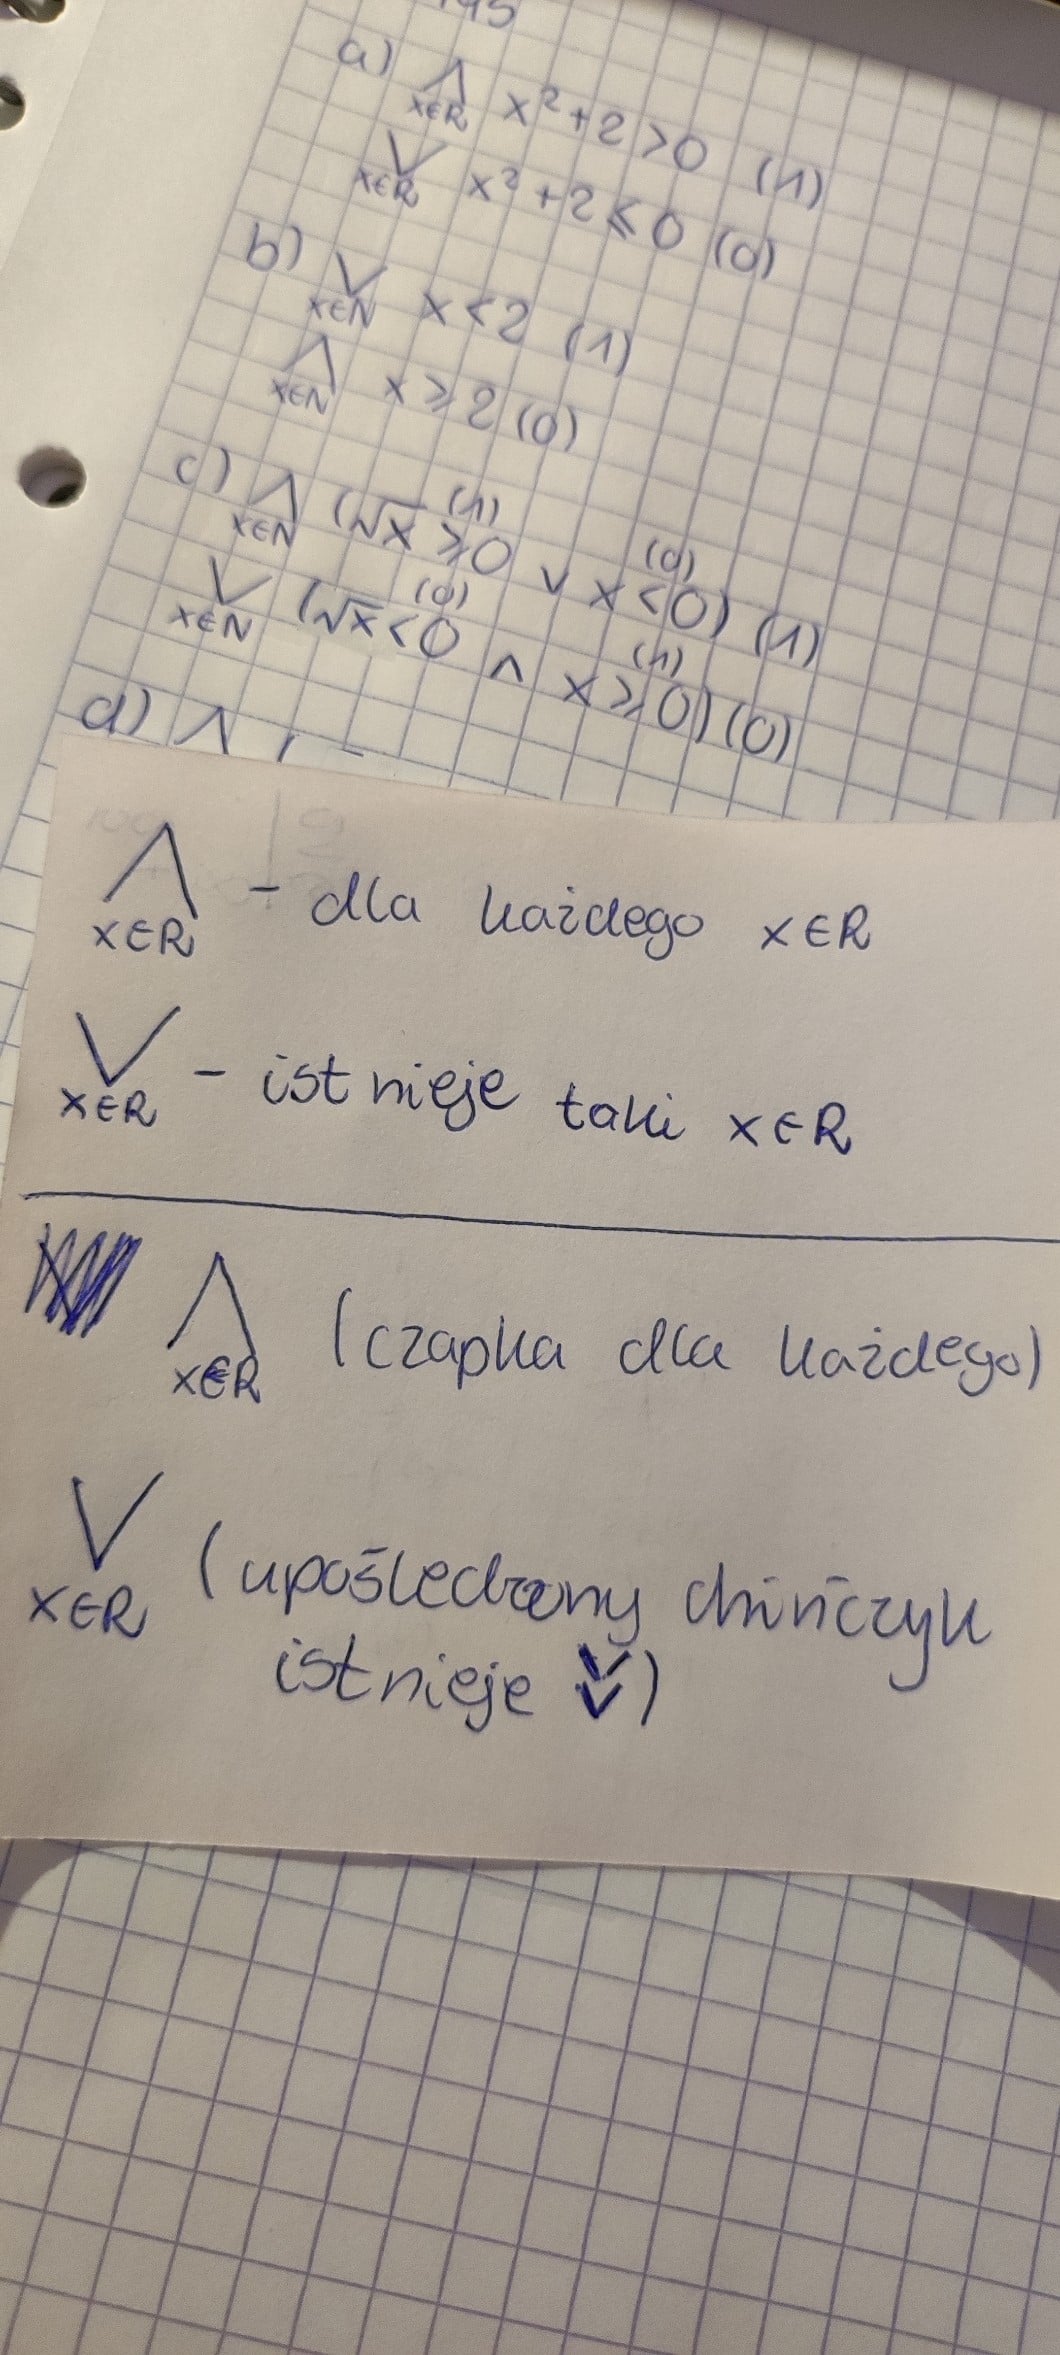 195
a) ⋀ x∈R x²+2>0 (1)
⋁ x∈R x²+2⩽0 (0)
b) ⋁ x∈N x<2 (1)
⋀ x∈N x⩾2 (0)
c) ⋀ x∈N (√x⩾0 (1) ∨ x<0) (0) (1)
⋁ x∈N (√x<0 (0) ∧ x⩾0) (1) (0)
d) ⋀
⋀ x∈R - dla każdego x∈R
⋁ x∈R - istnieje taki x∈R
⋀ x∈R (czapka dla każdego)
⋁ x∈R (upośledzony chińczyk
istnieje ⋁)